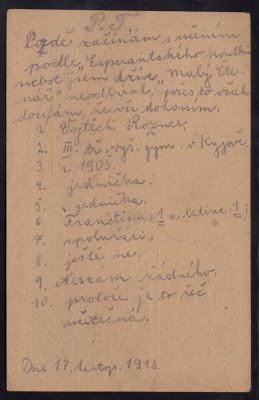 P. T.
Pozdě začínám s učením
podle „Esperantského koutku
neboť jsem dříve „Malý čte-
nář" neodbíral, přes to však
doufám, že vše dohoním.
1. Vojtěch Rozner.
2. III. tř. vyš. gym. v Kyjově
3. r. 1905.
4. jednička.
5. jednička.
6. Frančtina: 1 a latine: 1;
7. spolužáci.
8. ještě ne.
9. Neznám žádného.
10. protože je to řeč
užitečná.
Dne 17. listop. 1918.